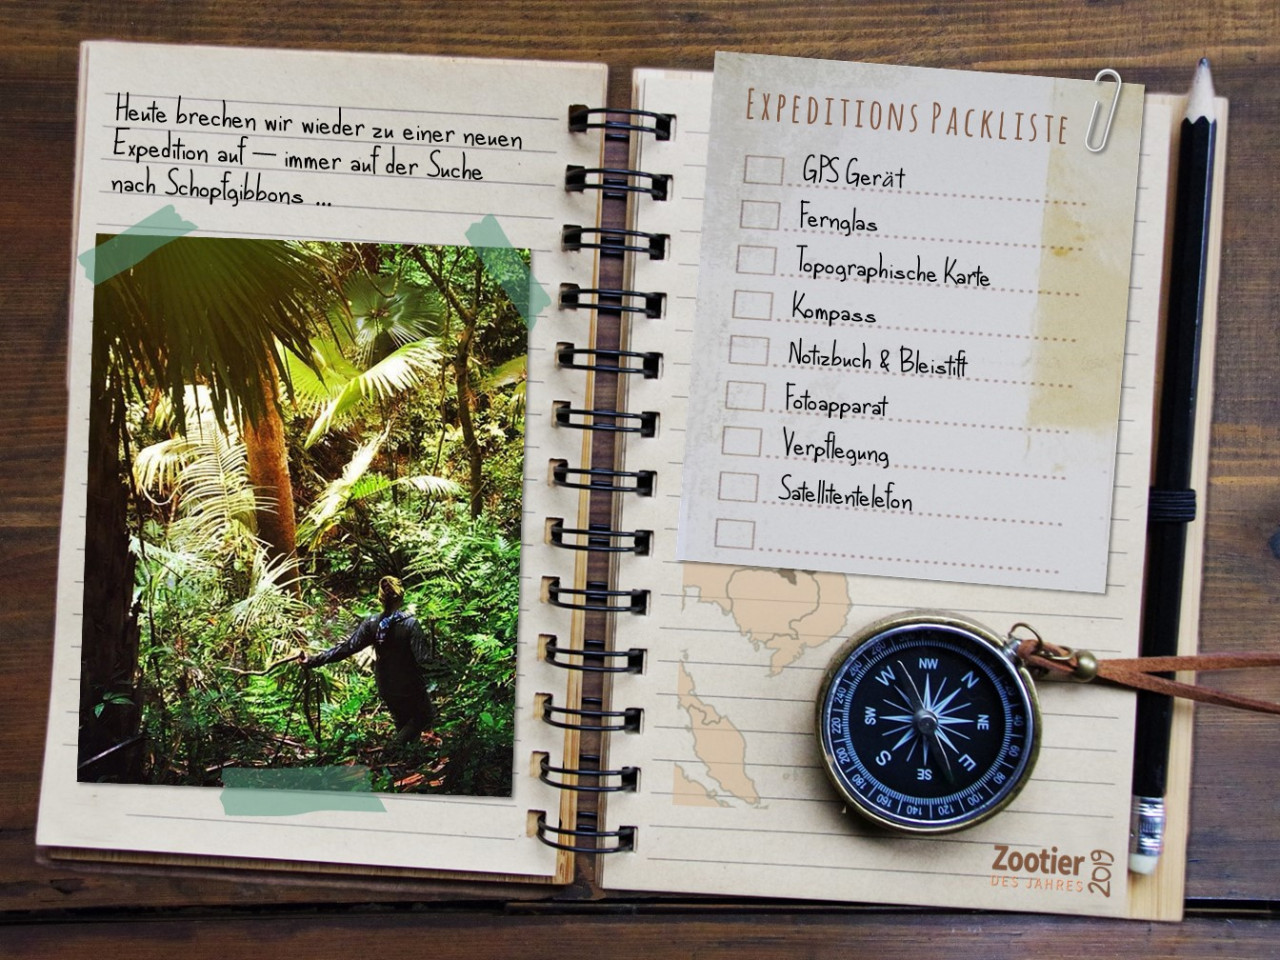 Heute brechen wir wieder zu einer neuen
Expedition auf — immer auf der Suche
nach Schopfgibbons ...
EXPEDITIONS PACKLISTE
GPS Gerät
Fernglas
Topographische Karte
Kompass
Notizbuch & Bleistift
Fotoapparat
Verpflegung
Satellitentelefon
NW
W N
SW NE
S E
SE
Zootier
DES JAHRES
2019